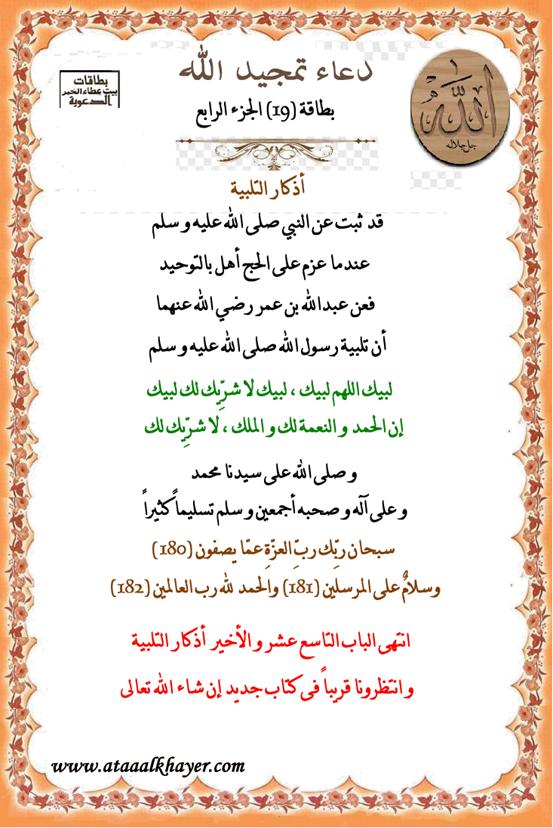 دعاء تمجيد الله
بطاقات
بيت عطاء الخير
الدعوية
بطاقة (19) الجزء الرابع
الله
جل جلاله
أذكار التلبية
قد ثبت عن النبي صلى الله عليه و سلم
عندما عزم على الحج أهل بالتوحيد
فعن عبدالله بن عمر رضي الله عنهما
أن تلبية رسول الله صلى الله عليه و سلم
لبيك اللهم لبيك ، لبيك لا شرِيك لك لبيك
إن الحمد و النعمة لك و الملك ، لا شرِيك لك
و صلى الله على سيدنا محمد
و على آله و صحبه أجمعين و سلم تسليماً كثيراً
سبحان ربِّك ربِّ العزّةِ عمّا يصفون (180)
وسلامٌ على المرسلين (181) والحمد لله رب العالمين (182)
انتهى الباب التاسع عشر و الأخير أذكار التلبية
و انتظرونا قريباً فى كتاب جديد إن شاء الله تعالى
www.ataaalkhayer.com